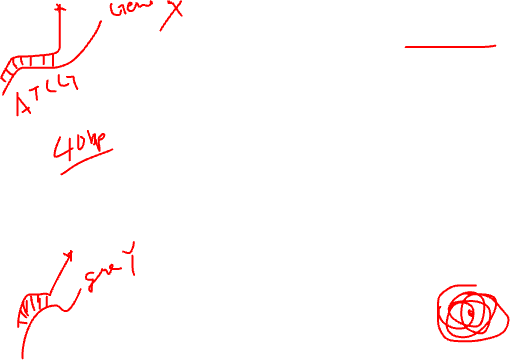 Gene X
ATCG
40bp
gene Y